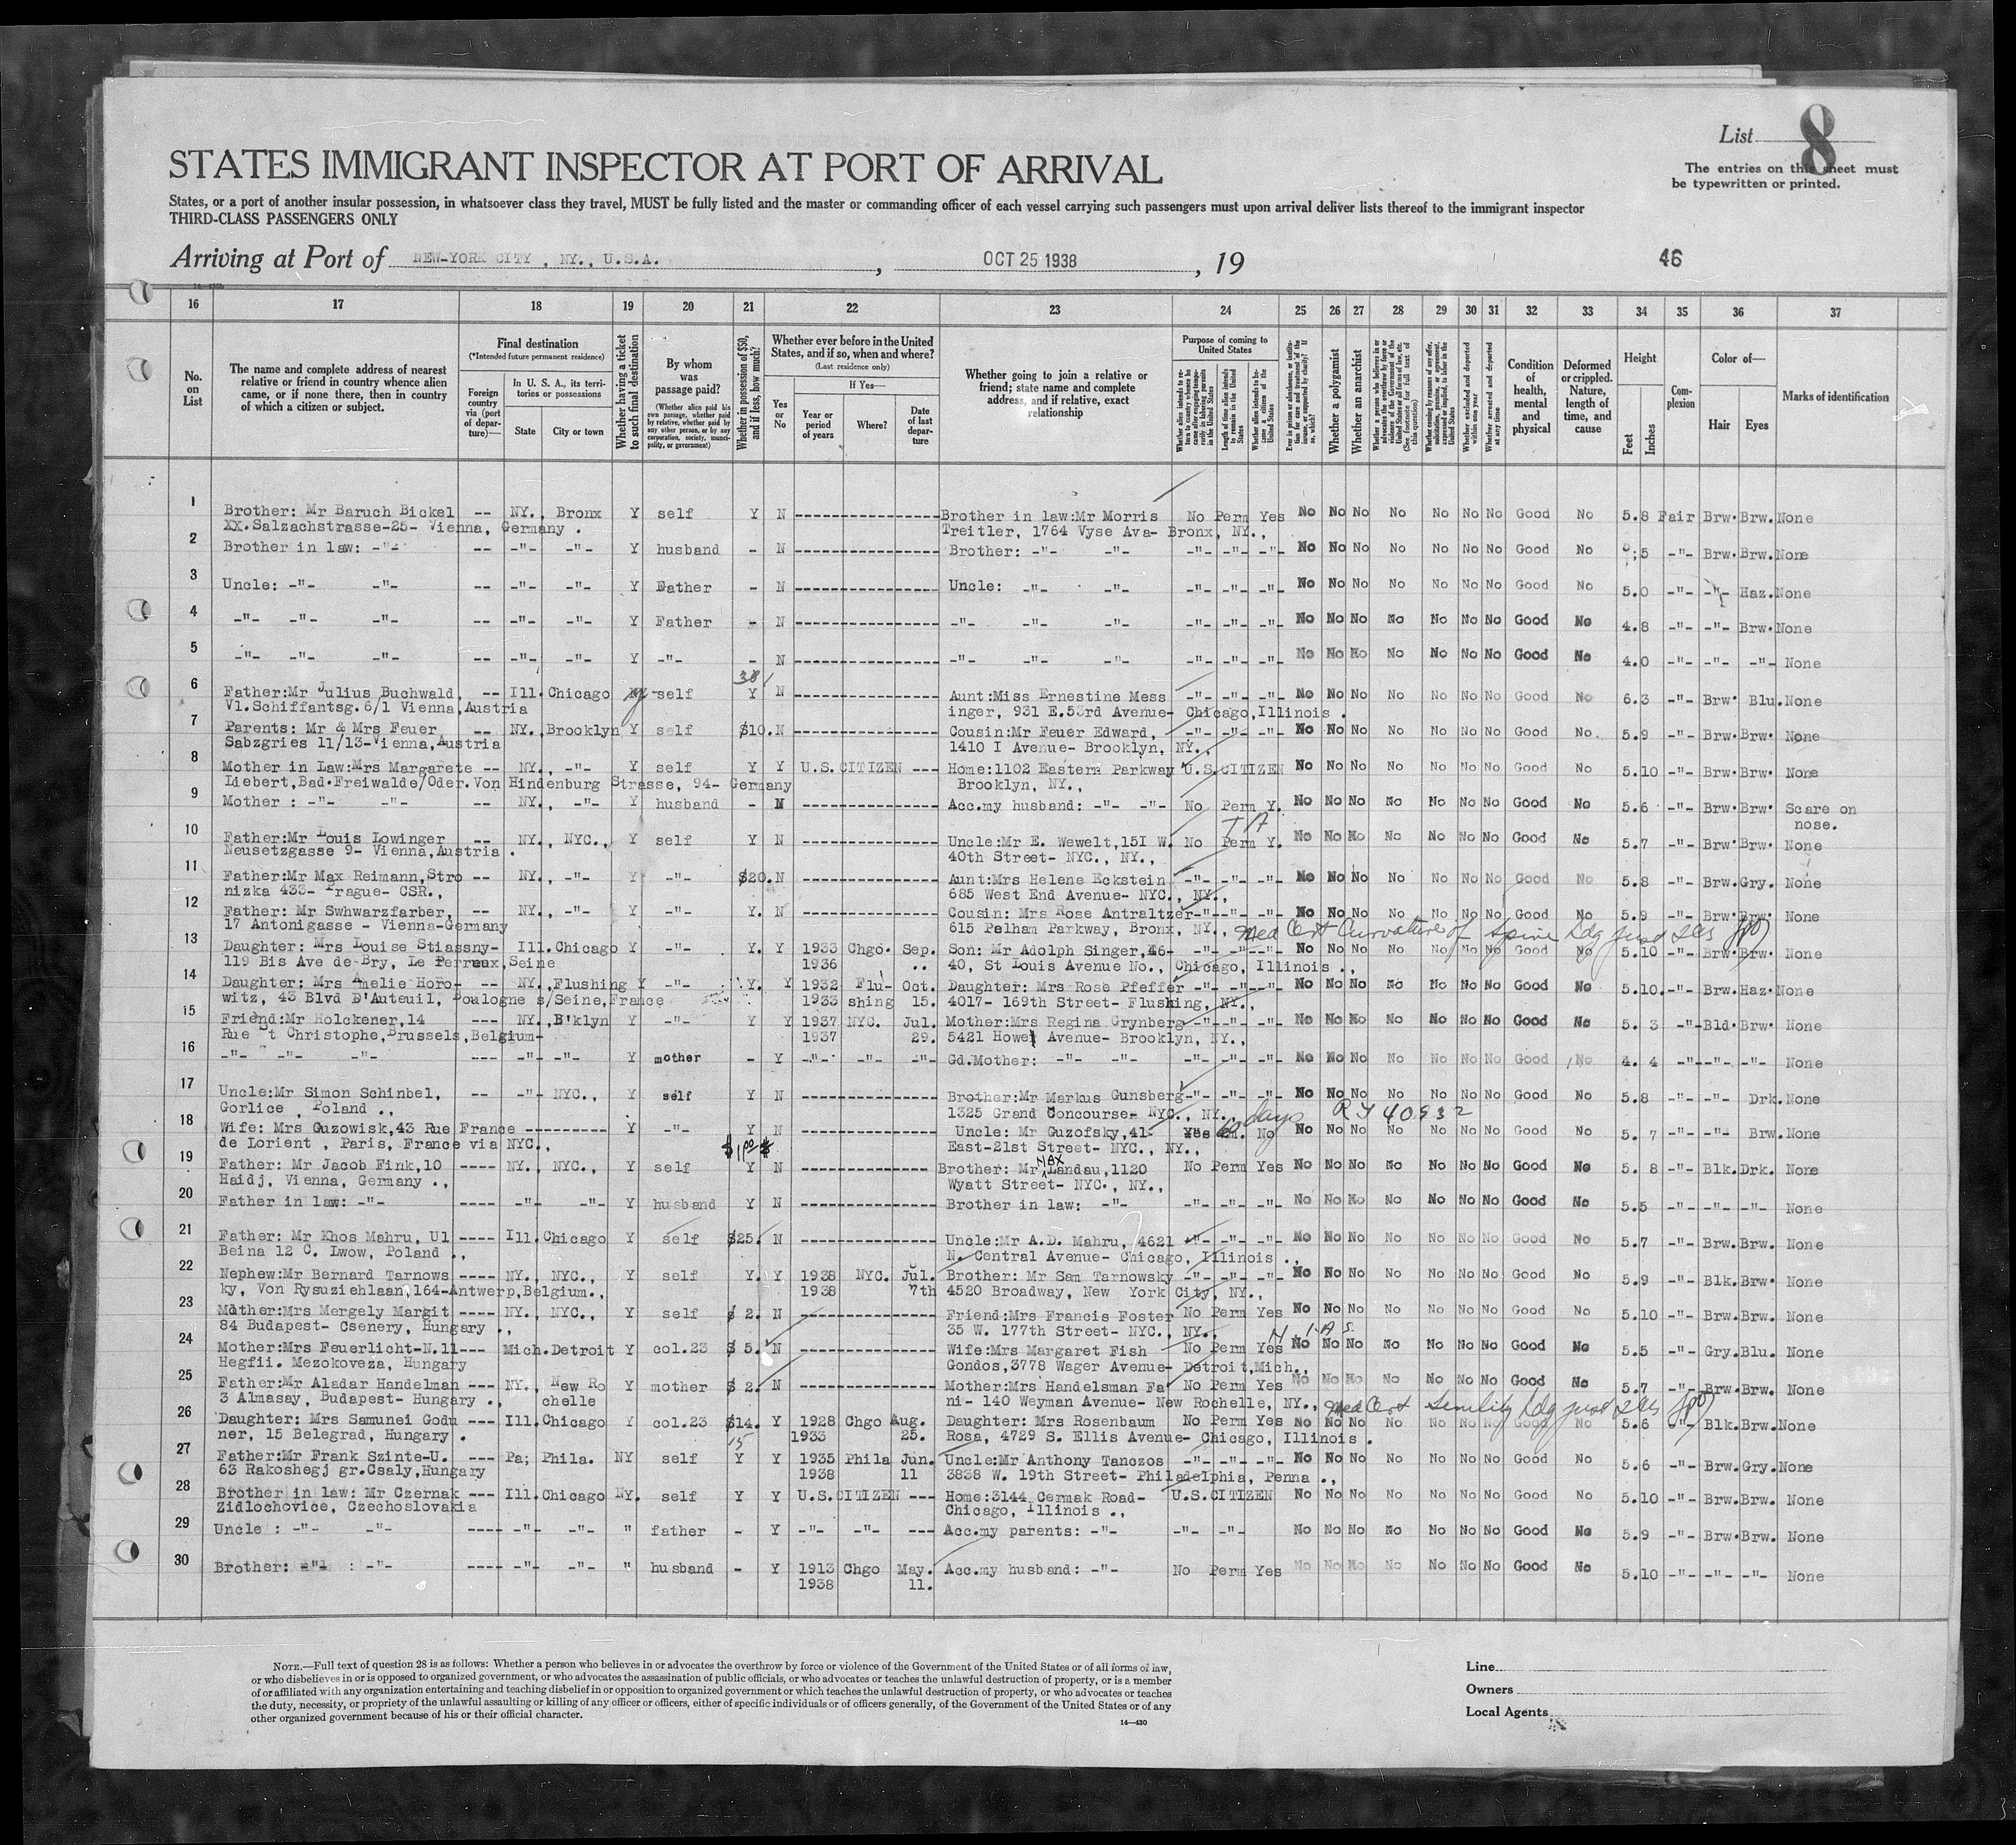 List 8
The entries on this sheet must
be typewritten or printed.
STATES IMMIGRANT INSPECTOR AT PORT OF ARRIVAL
States, or a port of another insular possession, in whatsoever class they travel, MUST be fully listed and the master or commanding officer of each vessel carrying such passengers must upon arrival deliver lists thereof to the immigrant inspector
THIRD-CLASS PASSENGERS ONLY
Arriving at Port of NEW-YORK CITY , NY., U.S.A. , OCT 25 1938 , 19 46
16 17 18 19 20 21 22 23 24 25 26 27 28 29 30 31 32 33 34 35 36 37
No. on List
The name and complete address of nearest relative or friend in country whence alien came, or if none there, then in country of which a citizen or subject.
Final destination
(*Intended future permanent residence)
Foreign country via (port of departure)—
In U. S. A., its territories or possessions
State
City or town
Whether having a ticket to such final destination
By whom was passage paid?
(Whether alien paid his own passage, whether paid by relative, whether paid by any other person, or by any corporation, society, municipality, or government)
Whether in possession of $50, and if less, how much?
Whether ever before in the United States, and if so, when and where?
(Last residence only)
Yes or No
If Yes—
Year or period of years
Where?
Date of last departure
Whether going to join a relative or friend; state name and complete address, and if relative, exact relationship
Purpose of coming to United States
Length of time alien intends to remain in the United States
Whether alien intends to become a citizen of the United States
Whether a polygamist
Whether an anarchist
Whether excluded and deported within one year
Whether arrested and deported at any time
Condition of health, mental and physical
Deformed or crippled. Nature, length of time, and cause
Height
Feet
Inches
Complexion
Color of—
Hair
Eyes
Marks of identification
1 Brother: Mr Baruch Bickel -- NY., Bronx Y self Y N ---------------- Brother in law:Mr Morris No Perm Yes No No No No No No No Good No 5.8 Fair Brw. Brw. None
XX.Salzachstrasse-25- Vienna, Germany . Treitler, 1764 Vyse Ava- Bronx, NY.,
2 Brother in law: -"- -- -"- -"- Y husband - N ---------------- Brother: -"- -"- -"- -"- -"- No No No No No No No Good No ;5 -"- Brw. Brw. None
3 Uncle: -"- -"- -- -"- -"- Y Father - N ---------------- Uncle: -"- -"- -"- -"- -"- No No No No No No No Good No 5.0 -"- -"- Haz. None
4 -"- -"- -"- -- -"- -"- Y Father - N ---------------- -"- -"- -"- -"- -"- -"- No No No No No No No Good No 4.8 -"- -"- Brw. None
5 -"- -"- -"- -- -"- -"- Y -"- - N ---------------- -"- -"- -"- -"- -"- -"- No No No No No No No Good No 4.0 -"- -"- -"- None
6 Father:Mr Julius Buchwald, -- Ill. Chicago self 38 Y N Aunt:Miss Ernestine Mess -"- -"- -"- No No No No No No No Good No 6.3 -"- Brw. Blu. None
Vl.Schiffantsg.6/1 Vienna,Austria inger, 931 E.53rd Avenue- Chicago,Illinois .
7 Parents: Mr & Mrs Feuer -- NY., Brooklyn Y self $10. N ---------------- Cousin:Mr Feuer Edward, -"- -"- -"- No No No No No No No Good No. 5.9 -"- Brw. Brw. None
Sabzgries 11/13-Vienna,Austria 1410 I Avenue- Brooklyn, NY.,
8 Mother in Law:Mrs Margarete -- NY., -"- Y self Y Y U.S.CITIZEN --- Home:1102 Eastern Parkway U.S.CITIZEN No No No No No No No Good No 5.10 -"- Brw. Brw. None
Liebert,Bad.Freiwalde/Oder.Von Hindenburg Strasse, 94- Germany Brooklyn, NY.,
9 Mother : -"- -"- -- NY., -"- Y husband - N ---------------- Acc.my husband: -"- -"- No Perm Y. No No No No No No No Good No 5.6 -"- Brw. Brw. Scare on
nose.
10 Father:Mr Louis Lowinger -- NY., NYC., Y self Y N ---------------- Uncle:Mr E. Wewelt,151 W. No Perm Y. No No No No No No No Good No 5.7 -"- Brw. Brw. None
Neusetzgasse 9- Vienna,Austria . 40th Street- NYC., NY.,
11 Father:Mr Max Reimann,Stro -- NY., -"- Y -"- $20. N ---------------- Aunt:Mrs Helene Eckstein -"- -"- -"- No No No No No No No Good No 5.8 -"- Brw. Gry. None
nizka 433- Prague- CSR., 685 West End Avenue- NYC., NY.,
12 Father: Mr Swhwarzfarber, -- NY., -"- Y -"- Y. N ---------------- Cousin: Mrs Rose Antraltzer -"- -"- -"- No No No No No No No Good No 5.9 -"- Brw. Brw. None
17 Antonigasse - Vienna-Germany 615 Pelham Parkway, Bronx, NY., Med Cert Curvature of Spine
13 Daughter: Mrs Louise Stiassny- Ill. Chicago Y -"- Y. Y 1933 Chgo. Sep. Son: Mr Adolph Singer,46- -"- -"- -"- No No No No No No No Good No 5.10 -"- Brw. Brw. None
119 Bis Ave de Bry, Le Perreux,Seine 1936 .. 40, St Louis Avenue No., Chicago, Illinois .,
14 Daughter: Mrs Amelie Horo- -- NY., Flushing Y -"- Y. Y 1932 Flu- Oct. Daughter: Mrs Rose Pfeffer -"- -"- -"- No No No No No No No Good No 5.10. -"- Brw. Haz. None
witz, 43 Blvd D'Auteuil, Boulogne s/Seine,France 1933 shing 15. 4017- 169th Street- Flushing, NY.,
15 Friend:Mr Holckener,14 -- NY., B'klyn Y -"- Y Y 1937 NYC. Jul. Mother:Mrs Regina Grynberg -"- -"- -"- No No No No No No No Good No 5. 3 -"- Bld. Brw. None
Rue St Christophe,Brussels,Belgium- 1937 29. 5421 Howe Avenue- Brooklyn, NY.,
16 -"- -"- -"- --- -"- -"- Y mother - Y -"- -"- -"- Gd.Mother: -"- -"- -"- -"- -"- No No No No No No No Good No 4. 4 -"- -"- -"- None
17 Uncle:Mr Simon Schinbel, -- -"- NYC., Y self Y N ---------------- Brother:Mr Markus Gunsberg -"- -"- -"- No No No No No No No Good No 5.8 -"- -"- Drk. None
Gorlice , Poland ., 1325 Grand Concourse- NYC., NY., 60 days
18 Wife: Mrs Guzowisk,43 Rue France ---------- Y -"- Y N ---------------- Uncle: Mr Guzofsky,41- Yes No No No No No No No No Good No 5. 7 -"- -"- Brw. None
de Lorient , Paris, France via NYC., East-21st Street- NYC., NY.,
19 Father: Mr Jacob Fink,10 ---- NY., NYC., Y self Y N ---------------- Brother: Mr MAX Landau,1120 No Perm Yes No No No No No No No Good No 5. 8 -"- Blk. Drk. None
Haidj, Vienna, Germany ., Wyatt Street- NYC., NY.,
20 Father in law: -"- ---- -"- -"- Y husband Y N ---------------- Brother in law: -"- -"- -"- -"- No No No No No No No Good No 5.5 -"- -"- -"- None
21 Father: Mr Khos Mahru, Ul ---- Ill. Chicago Y self $25. N ---------------- Uncle:Mr A.D. Mahru, 4621 -"- -"- -"- No No No No No No No Good No 5.7 -"- Brw. Brw. None
Beina 12 C. Lwow, Poland ., N. Central Avenue- Chicago, Illinois .,
22 Nephew:Mr Bernard Tarnows ---- NY., NYC., Y self Y. Y 1938 NYC. Jul. Brother: Mr Sam Tarnowsky -"- -"- -"- No No No No No No No Good No 5.9 -"- Blk. Brw. None
ky, Von Rysuziehlaan,164-Antwerp,Belgium., 1938 7th 4520 Broadway, New York City, NY.,
23 Mother:Mrs Mergely Margit ---- NY., NYC., Y self $ 2. N ---------------- Friend:Mrs Francis Foster No Perm Yes No No No No No No No Good No 5.10 -"- Brw. Brw. None
84 Budapest- Csenery, Hungary ., 35 W. 177th Street- NYC., NY.,
24 Mother:Mrs Feuerlicht-N.11--- Mich. Detroit Y col.23 $ 5. N ---------------- Wife:Mrs Margaret Fish No Perm Yes No No No No No No No Good No 5.5 -"- Gry. Blu. None
Hegfii. Mezokoveza, Hungary Gondos,3778 Wager Avenue- Detroit,Mich.,
25 Father:Mr Aladar Handelman --- NY., New Ro Y mother $ 2. N ---------------- Mother:Mrs Handelsman Fa No Perm Yes No No No No No No No Good No 5.7 -"- Brw. Brw. None
3 Almasay, Budapest- Hungary ., chelle ni- 140 Weyman Avenue- New Rochelle, NY., Med Cert Senility
26 Daughter: Mrs Samunei Godu --- Ill. Chicago Y col.23 $14. Y 1928 Chgo Aug. Daughter: Mrs Rosenbaum No Perm Yes No No No No No No No Good No 5.6 -"- Blk. Brw. None
ner, 15 Belegrad, Hungary . 15 1933 25. Rosa, 4729 S. Ellis Avenue- Chicago, Illinois .
27 Father:Mr Frank Szinte-U. --- Pa; Phila. NY self Y Y 1935 Phila Jun. Uncle:Mr Anthony Tanczos -"- -"- -"- No No No No No No No Good No 5.6 -"- Brw. Gry. None
63 Rakoshegj gr.Csaly,Hungary 1938 11 3838 W. 19th Street- Philadelphia, Penna .,
28 Brother in law: Mr Czernak --- Ill. Chicago NY. self Y Y U.S.CITIZEN --- Home:3144 Cermak Road- U.S.CITIZEN No No No No No No No Good No 5.10 -"- Brw. Brw. None
Zidlochovice, Czechoslovakia Chicago, Illinois .,
29 Uncle : -"- -"- ---- -"- -"- " father - Y -"- -"- --- Acc.my parents: -"- -"- -"- No No No No No No No Good No 5.9 -"- Brw. Brw. None
30 Brother: -"- : -"- ---- -"- -"- " husband - Y 1913 Chgo May. Acc.my husband: -"- No Perm Yes No No No No No No No Good No 5.10 -"- -"- -"- None
1938 11.
NOTE.—Full text of question 28 is as follows: Whether a person who believes in or advocates the overthrow by force or violence of the Government of the United States or of all forms of law,
or who disbelieves in or is opposed to organized government, or who advocates the assassination of public officials, or who advocates or teaches the unlawful destruction of property, or is a member
of or affiliated with any organization entertaining and teaching disbelief in or opposition to organized government or which teaches the unlawful destruction of property, or who advocates or teaches
the duty, necessity, or propriety of the unlawful assaulting or killing of any officer or officers, either of specific individuals or of officers generally, of the Government of the United States or of any
other organized government because of his or their official character.
14—430
Line
Owners
Local Agents